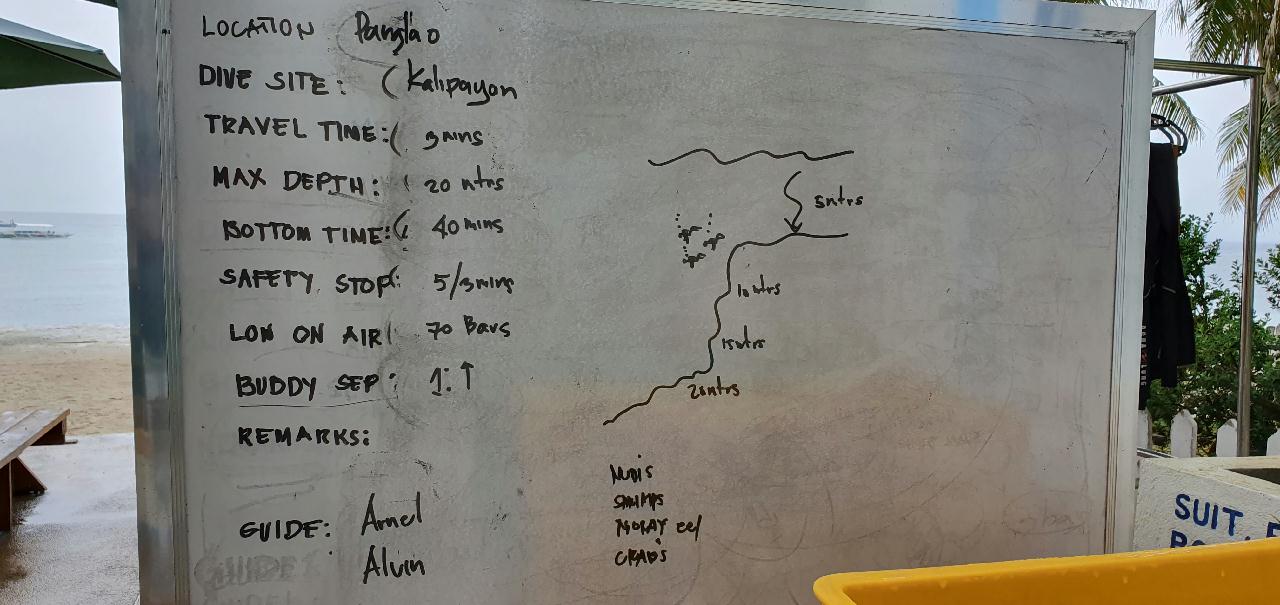 LOCATION Panglao
DIVE SITE: Kalipayon
TRAVEL TIME: 3 mins
MAX DEPTH: 20 mtrs
BOTTOM TIME: 40 mins
SAFETY STOP: 5/3mins
LOW ON AIR 70 Bars
BUDDY SEP: 1:↑
REMARKS:
GUIDE: Arnel
Alvin
GUIDE
5mtrs
10mtrs
15mtrs
20mtrs
NUDIS
SHRIMPS
MORAY eel
CRABS
SUIT